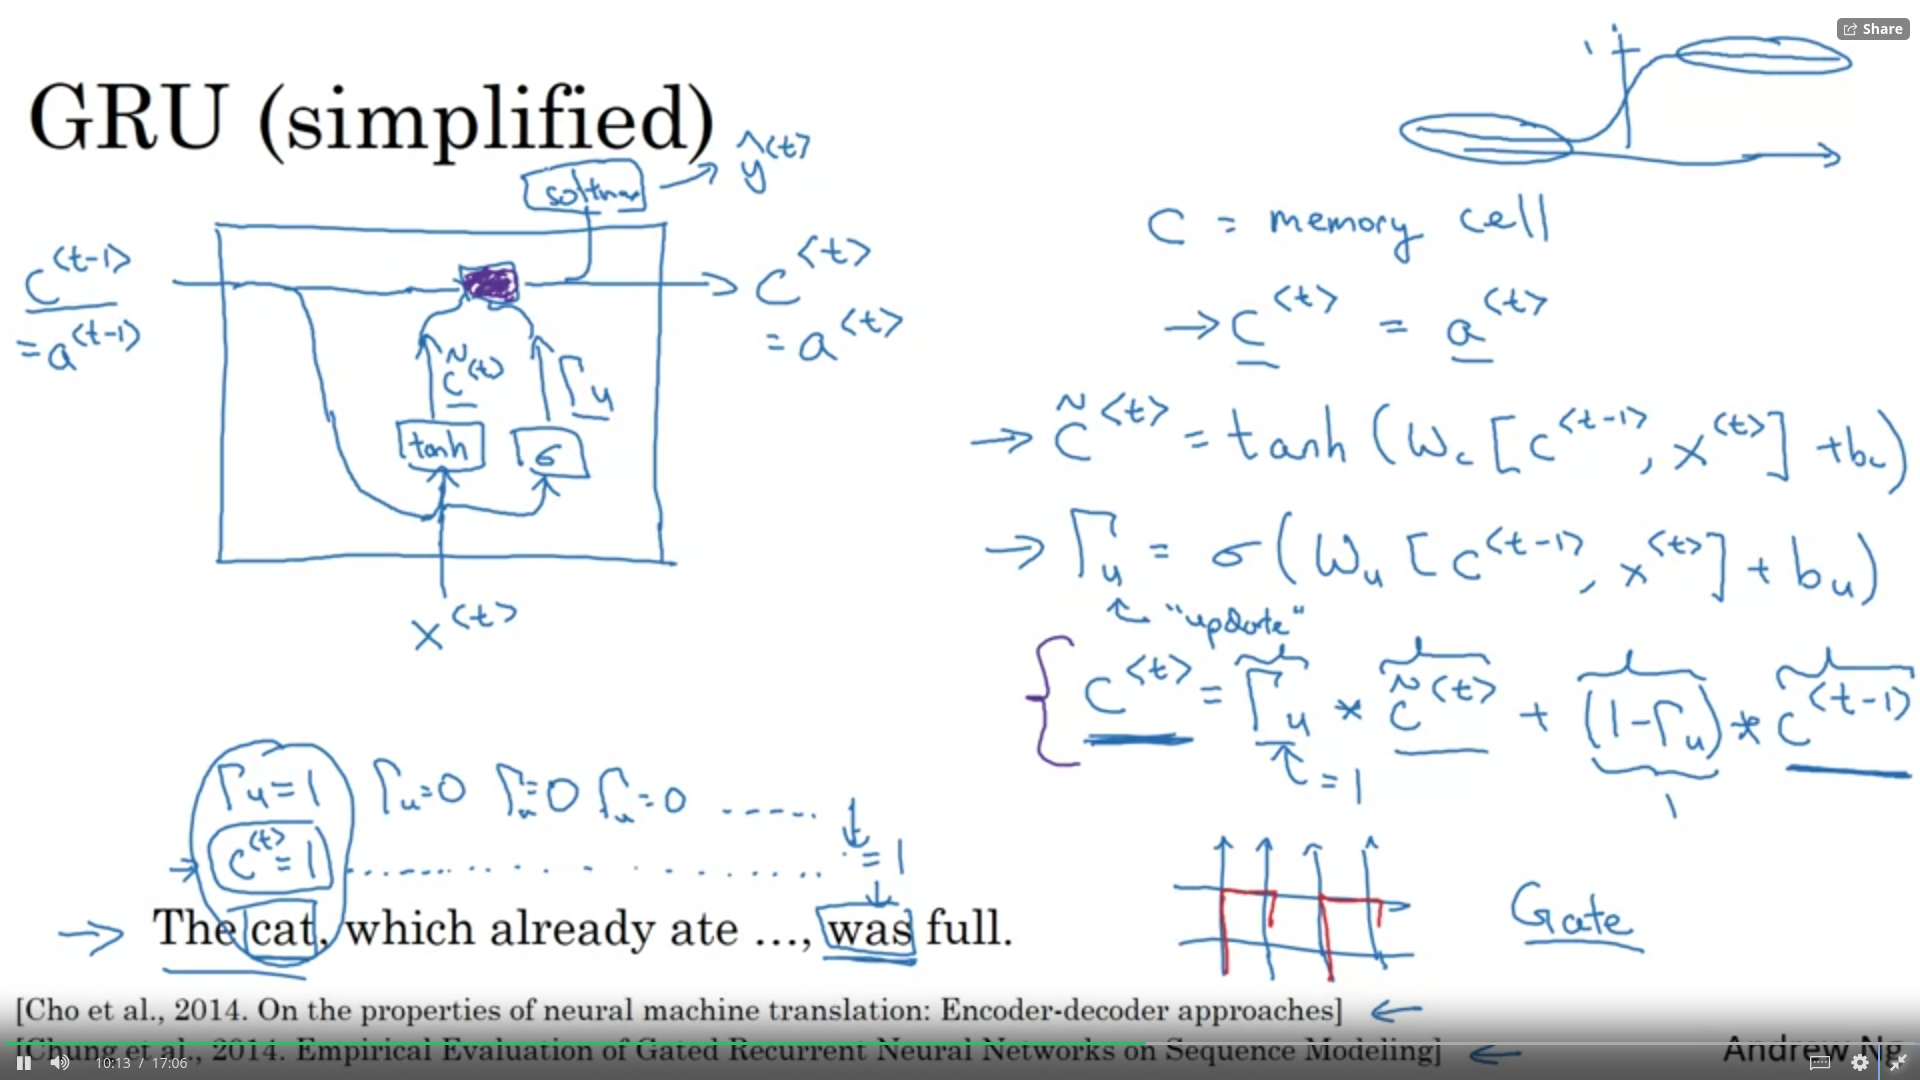 Share
GRU (simplified)
softmax → ŷ<t>
c<t-1>
= a<t-1>
c̃<t>
Γu
tanh
σ
x<t>
c<t>
= a<t>
1
C = memory cell
→ c<t> = a<t>
→ c̃<t> = tanh (Wc [c<t-1>, x<t>] + bc)
→ Γu = σ (Wu [c<t-1>, x<t>] + bu)
"update"
c<t> = Γu * c̃<t> + (1-Γu) * c<t-1>
= 1
1
Γu=1 Γu=0 Γu=0 Γu=0 .....
c<t>=1 = 1
→ The cat, which already ate ..., was full.
Gate
[Cho et al., 2014. On the properties of neural machine translation: Encoder-decoder approaches] ←
[Chung et al., 2014. Empirical Evaluation of Gated Recurrent Neural Networks on Sequence Modeling] ←
Andrew Ng
10:13 / 17:06